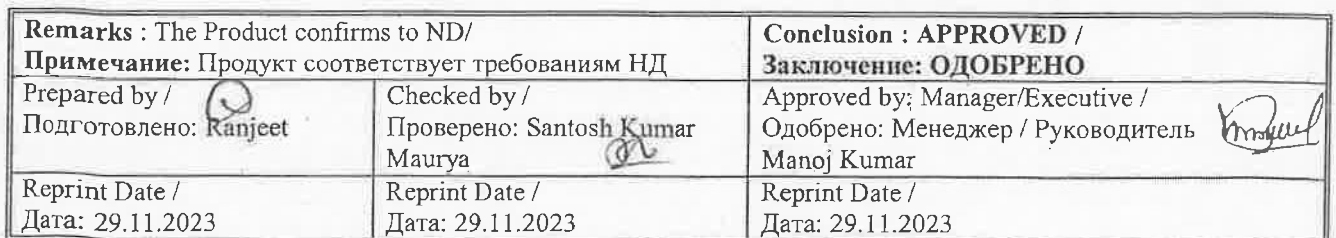 Remarks : The Product confirms to ND/
Примечание: Продукт соответствует требованиям НД
Conclusion : APPROVED /
Заключение: ОДОБРЕНО
Prepared by /
Подготовлено: Ranjeet
Checked by /
Проверено: Santosh Kumar
Maurya
Approved by: Manager/Executive /
Одобрено: Менеджер / Руководитель
Manoj Kumar
Reprint Date /
Дата: 29.11.2023
Reprint Date /
Дата: 29.11.2023
Reprint Date /
Дата: 29.11.2023